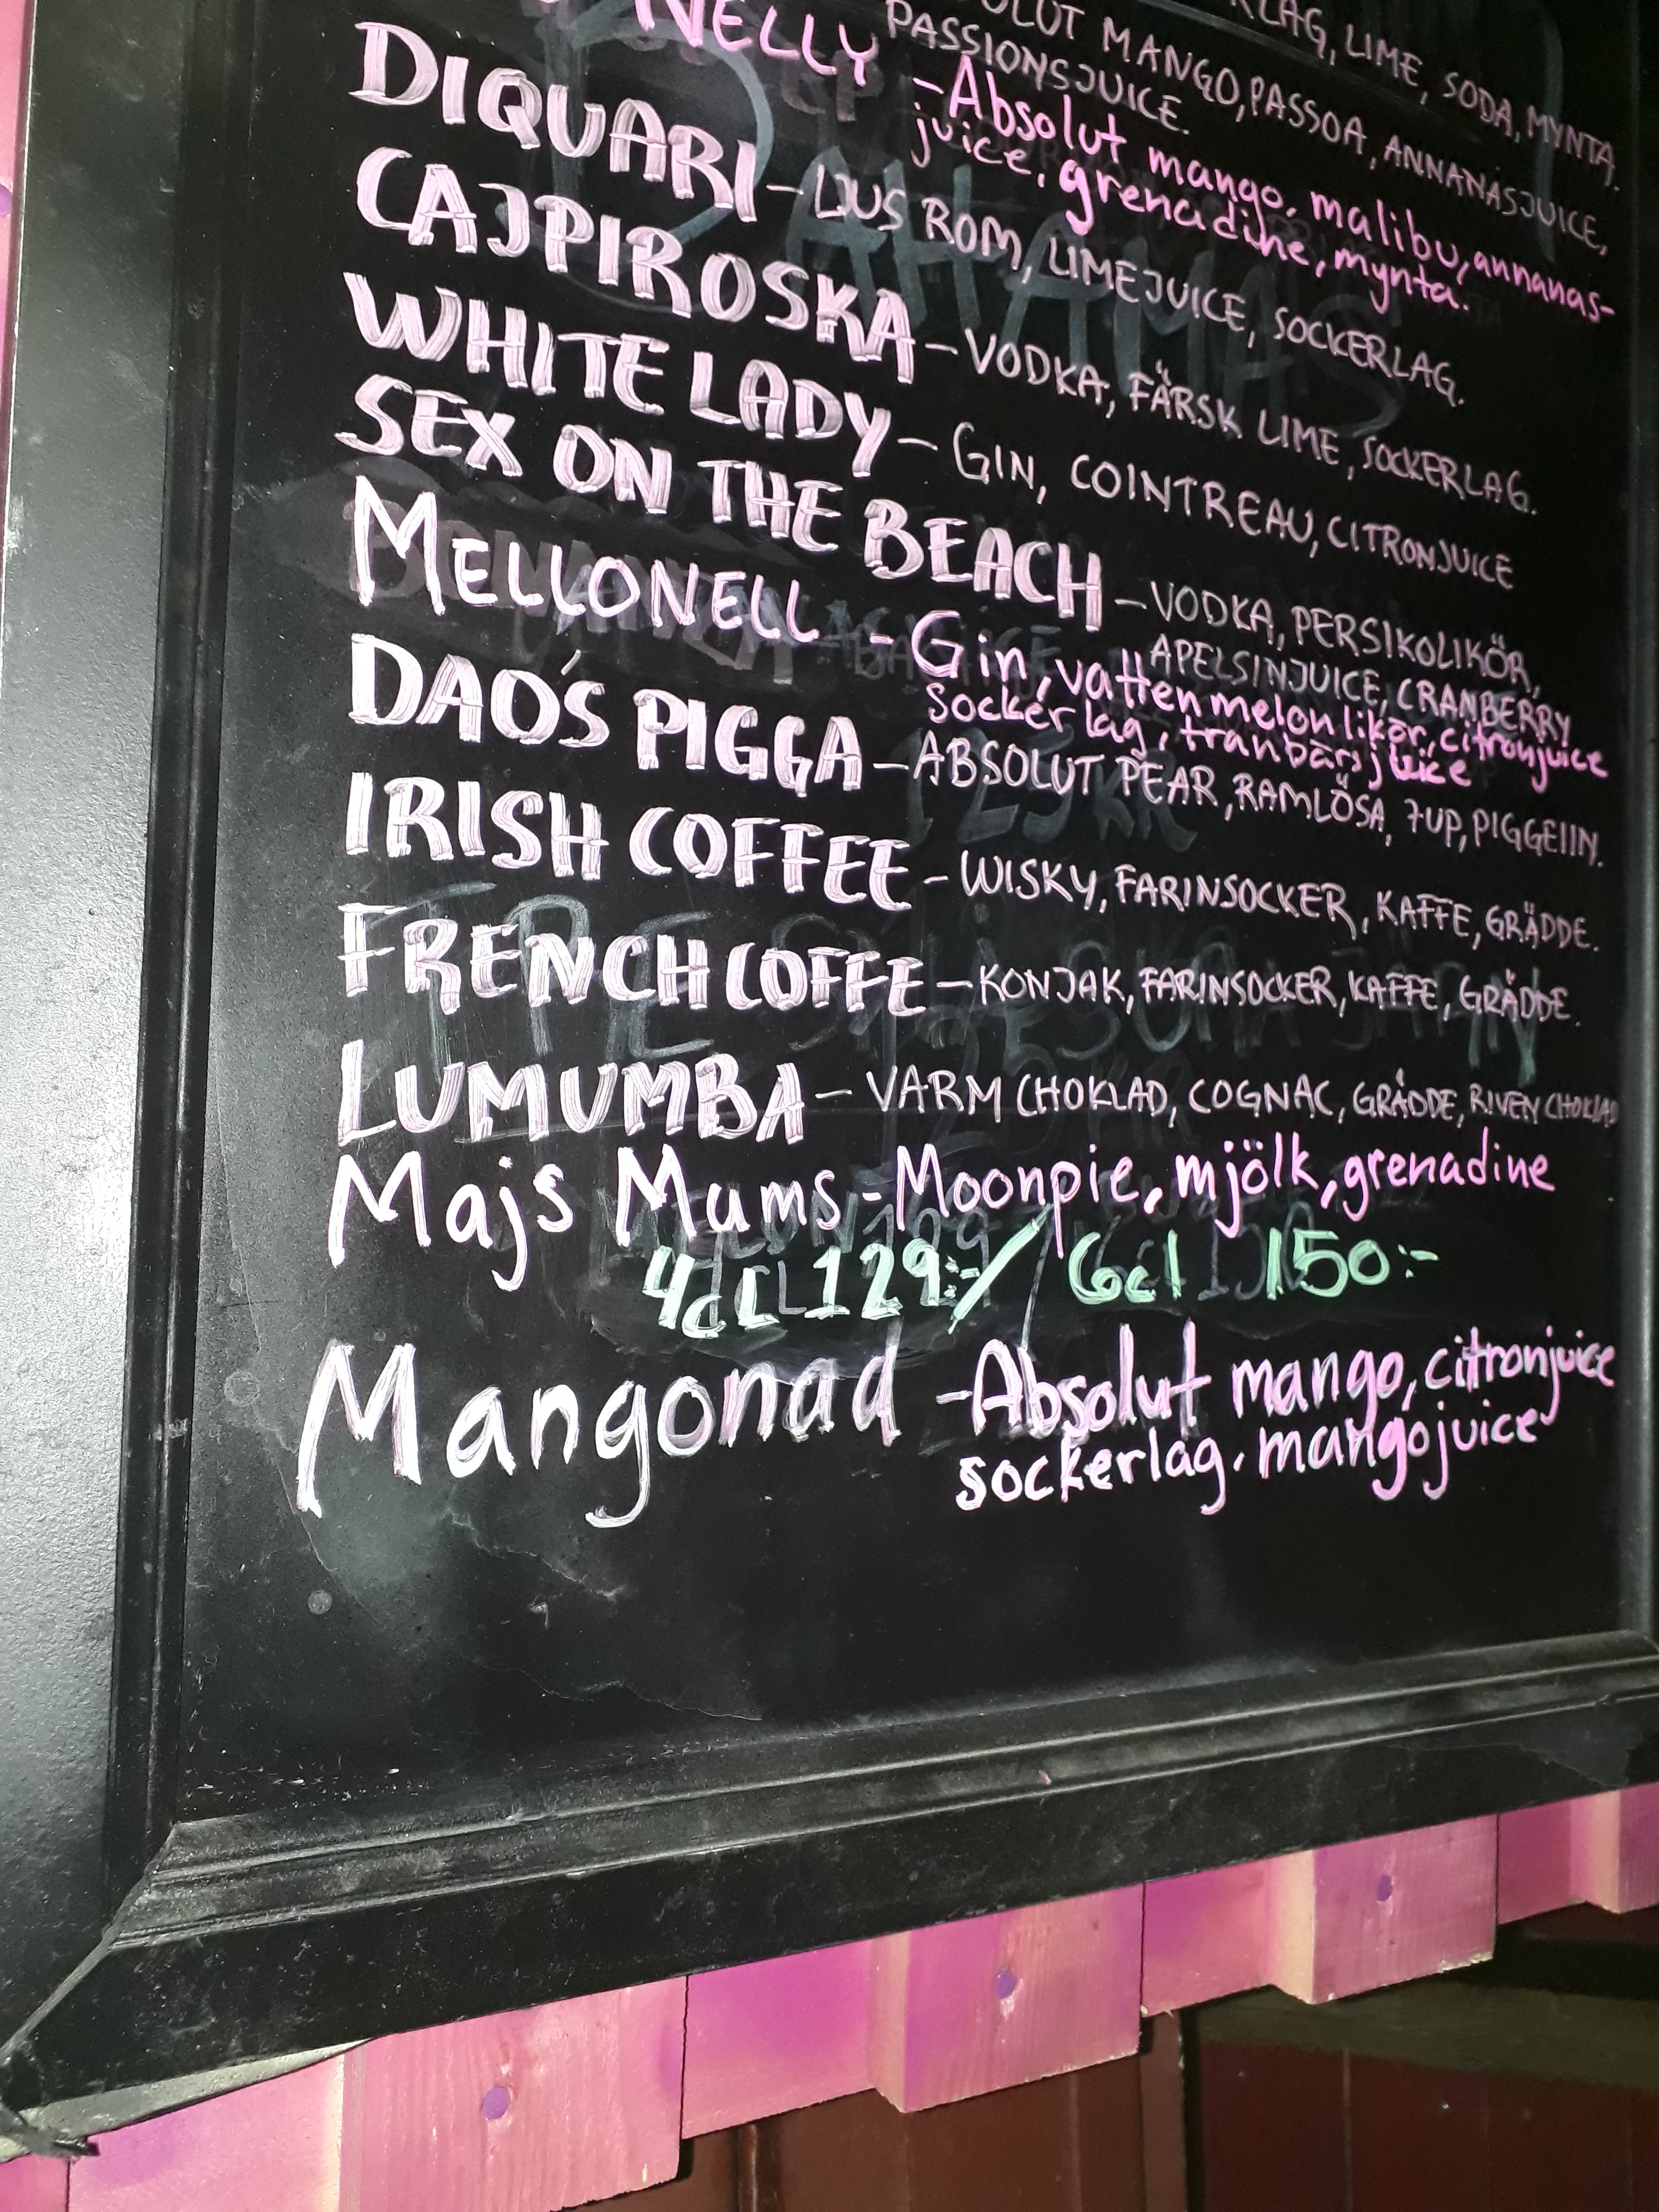 RLAG, LIME, SODA, MYNTA.
OLUT MANGO, PASSOA, ANNANASJUICE,
PASSIONSJUICE.
NELLY -Absolut mango, malibu, annanas-
juice, grenadine, mynta.
DIQUARI - LJUS ROM, LIMEJUICE, SOCKERLAG.
CAJPIROSKA - VODKA, FÄRSK LIME, SOCKERLAG.
WHITE LADY - GIN, COINTREAU, CITRONJUICE
SEX ON THE BEACH - VODKA, PERSIKOLIKÖR,
APELSINJUICE, CRANBERRY
MELLONELL - Gin, vattenmelonlikör, citronjuice
Sockerlag, tranbärsjuice
DAO'S PIGGA - ABSOLUT PEAR, RAMLÖSA, 7UP, PIGGELIN.
IRISH COFFEE - WISKY, FARINSOCKER, KAFFE, GRÄDDE.
FRENCH COFFE - KONJAK, FARINSOCKER, KAFFE, GRÄDDE.
LUMUMBA - VARM CHOKLAD, COGNAC, GRÄDDE, RIVEN CHOKLAD
Majs Mums - Moonpie, mjölk, grenadine
4cL 129:- / 6cl 150:-
Mangonad - Absolut mango, citronjuice
sockerlag, mangojuice